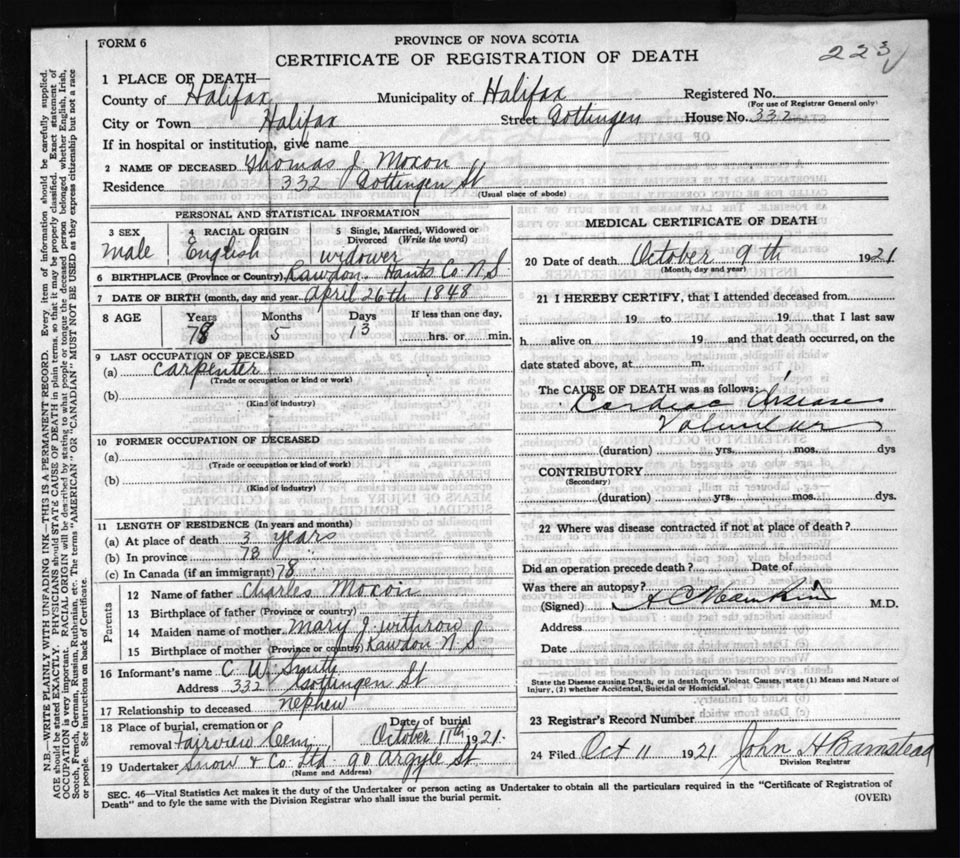 FORM 6
PROVINCE OF NOVA SCOTIA
CERTIFICATE OF REGISTRATION OF DEATH
223
1 PLACE OF DEATH—
County of Halifax Municipality of Halifax Registered No.
(For use of Registrar General only)
City or Town Halifax Street Gottingen House No. 332
If in hospital or institution, give name
2 NAME OF DECEASED Thomas J. Moxon
Residence 332 Gottingen St
(Usual place of abode)
PERSONAL AND STATISTICAL INFORMATION
3 SEX 4 RACIAL ORIGIN 5 Single, Married, Widowed or Divorced (Write the word)
male English widower
6 BIRTHPLACE (Province or Country) Rawdon. Hants Co. N.S
7 DATE OF BIRTH (month, day and year April 26th 1848
8 AGE Years Months Days If less than one day,
78 5 13 hrs. or min.
9 LAST OCCUPATION OF DECEASED
(a) Carpenter
(Trade or occupation or kind or work)
(b)
(Kind of industry)
10 FORMER OCCUPATION OF DECEASED
(a)
(Trade or occupation or kind or work)
(b)
(Kind of industry)
11 LENGTH OF RESIDENCE (In years and months)
(a) At place of death 3 years
(b) In province 78 "
(c) In Canada (if an immigrant) 78
Parents
12 Name of father Charles Moxon
13 Birthplace of father (Province or country)
14 Maiden name of mother Mary J. Withrow
15 Birthplace of mother (Province or country) Rawdon N S
16 Informant's name C. W. Smith
Address 332 Gottingen St
17 Relationship to deceased nephew
18 Place of burial, cremation or Date of burial
removal Fairview Cem. October 11th 1921.
19 Undertaker Snow & Co. Ltd. 90 Argyle St
(Name and Address)
MEDICAL CERTIFICATE OF DEATH
20 Date of death October 9th 1921
(Month, day and year)
21 I HEREBY CERTIFY, that I attended deceased from
19 to 19 that I last saw
h alive on 19 and that death occurred, on the
date stated above, at m.
The CAUSE OF DEATH was as follows:
Cardiac Disease
Valvular
(duration) yrs. mos. dys
CONTRIBUTORY.
(Secondary)
(duration) yrs. mos. dys.
22 Where was disease contracted if not at place of death?
Did an operation precede death? Date of
Was there an autopsy?
(Signed) M.D.
Address
Date
State the Disease causing Death, or in death from Violent Causes, state (1) Means and Nature of
Injury, (2) whether Accidental, Suicidal or Homicidal.
23 Registrar's Record Number
24 Filed Oct 11 1921 John H Barnstead
Division Registrar
SEC. 46—Vital Statistics Act makes it the duty of the Undertaker or person acting as Undertaker to obtain all the particulars required in the "Certificate of Registration of
Death" and to fyle the same with the Division Registrar who shall issue the burial permit. (OVER)
N.B.—WRITE PLAINLY WITH UNFADING INK—THIS IS A PERMANENT RECORD. Every item of information should be carefully supplied.
AGE should be stated EXACTLY. PHYSICIANS should STATE CAUSE OF DEATH in plain terms, so that it may be properly classified. Exact statement of
OCCUPATION is very important. RACIAL ORIGIN will be described by stating to what people or tongue the deceased person belonged, whether English, Irish,
Scotch, French, German, Russian, Ruthenian, etc. The terms "AMERICAN" OR "CANADIAN" MUST NOT BE USED as they express citizenship but not a race
or people. See instructions on back of Certificate.